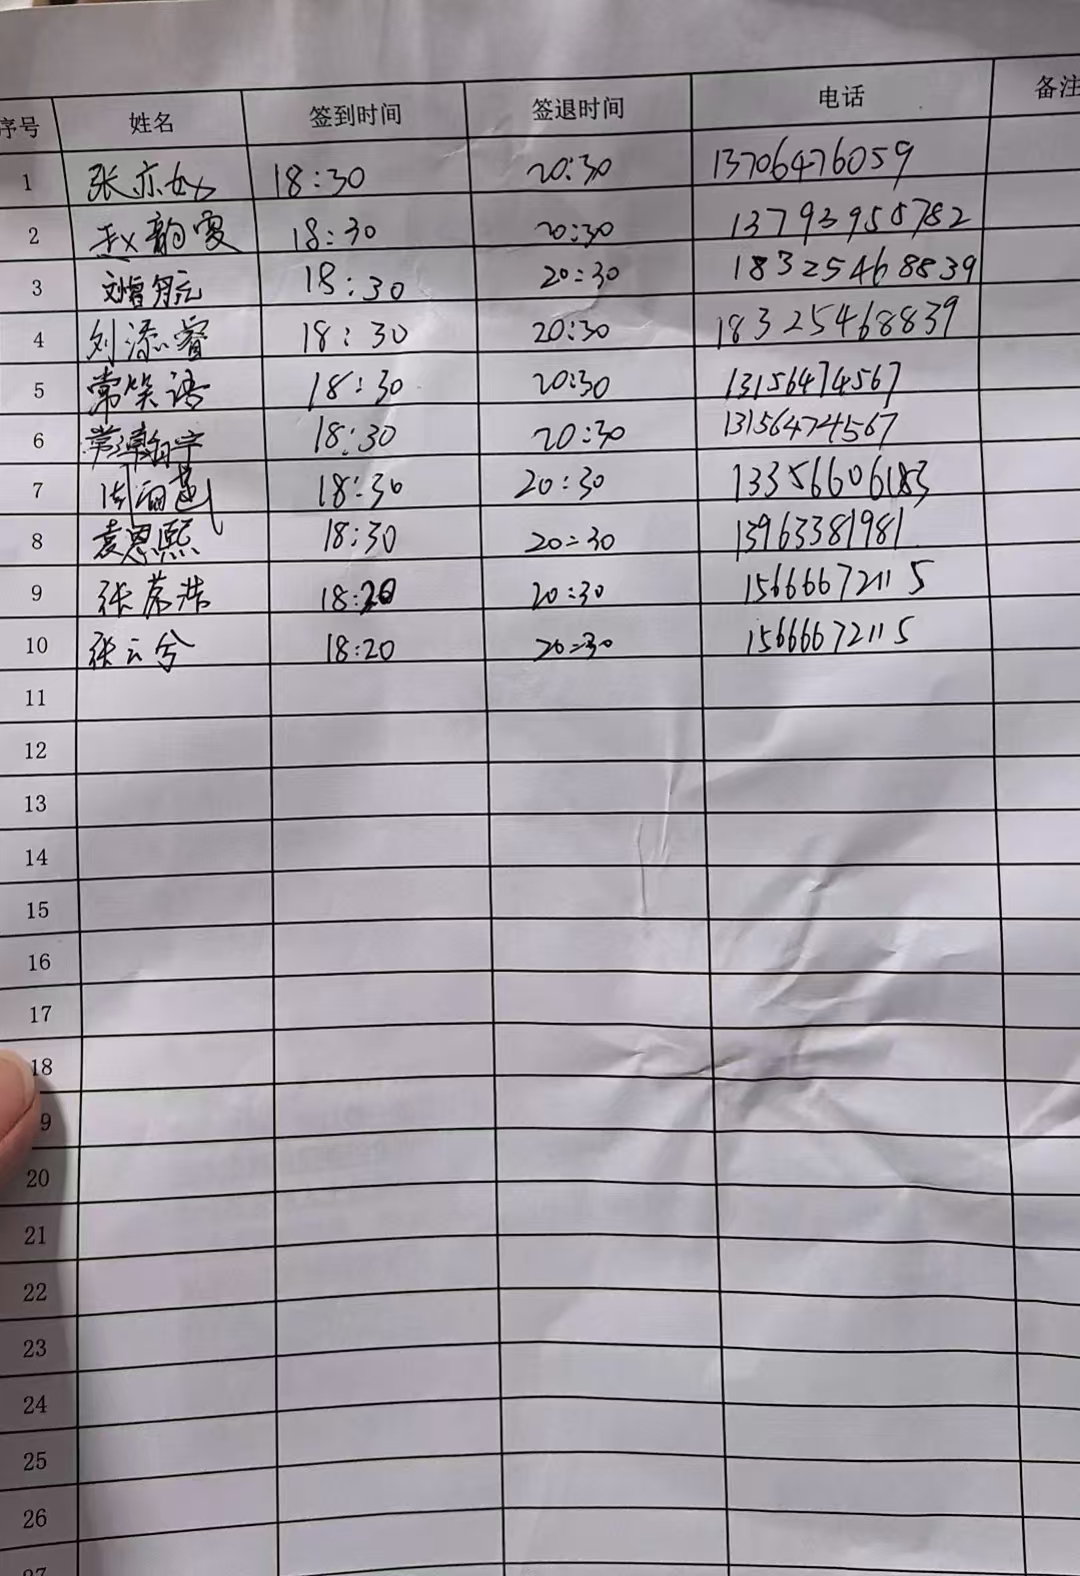 序号 姓名 签到时间 签退时间 电话 备注
1 张亦如 18:30 20:30 13706476059
2 赵韵雯 18:30 20:30 13793955782
3 18:30 20:30 18325468839
4 刘添睿 18:30 20:30 18325468839
5 常笑语 18:30 20:30 13156474567
6 常瀚宁 18:30 20:30 13156474567
7 18:30 20:30 13356606183
8 袁思熙 18:30 20:30 13963381981
9 张慕浩 18:20 20:30 15666672115
10 张云兮 18:20 20:30 15666672115
11
12
13
14
15
16
17
18
9
20
21
22
23
24
25
26
27